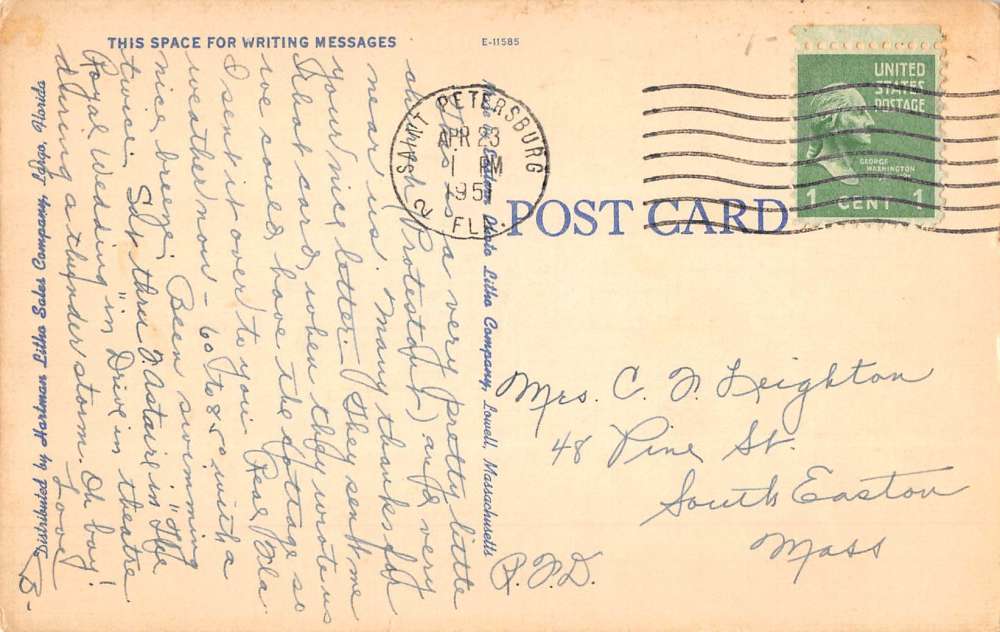 THIS SPACE FOR WRITING MESSAGES
E-11585
a very pretty little
church (Protestant) and very
near us. Many thanks for
your nice letter. They sent me
that card, when they wrote us
we could have the cottage so
I sent it over to you. Real Fla.
weather now - 60 to 85° with a
nice breeze. Been swimming
twice. Sat thru F. Astaire in "The
Royal Wedding" in Drive in theatre
during a thunder storm. Oh boy!
Love,
B-
Distributed by Hartman Litho Sales Company, Largo, Florida
Photo Litho Company, Lowell, Massachusetts
SAINT PETERSBURG
APR 23
1 PM
1951
2
FLA.
UNITED
STATES
POSTAGE
GEORGE
WASHINGTON
1 CENT 1
POST CARD
Mrs. C. F. Leighton
48 Pine St.
South Easton
Mass
R.F.D.